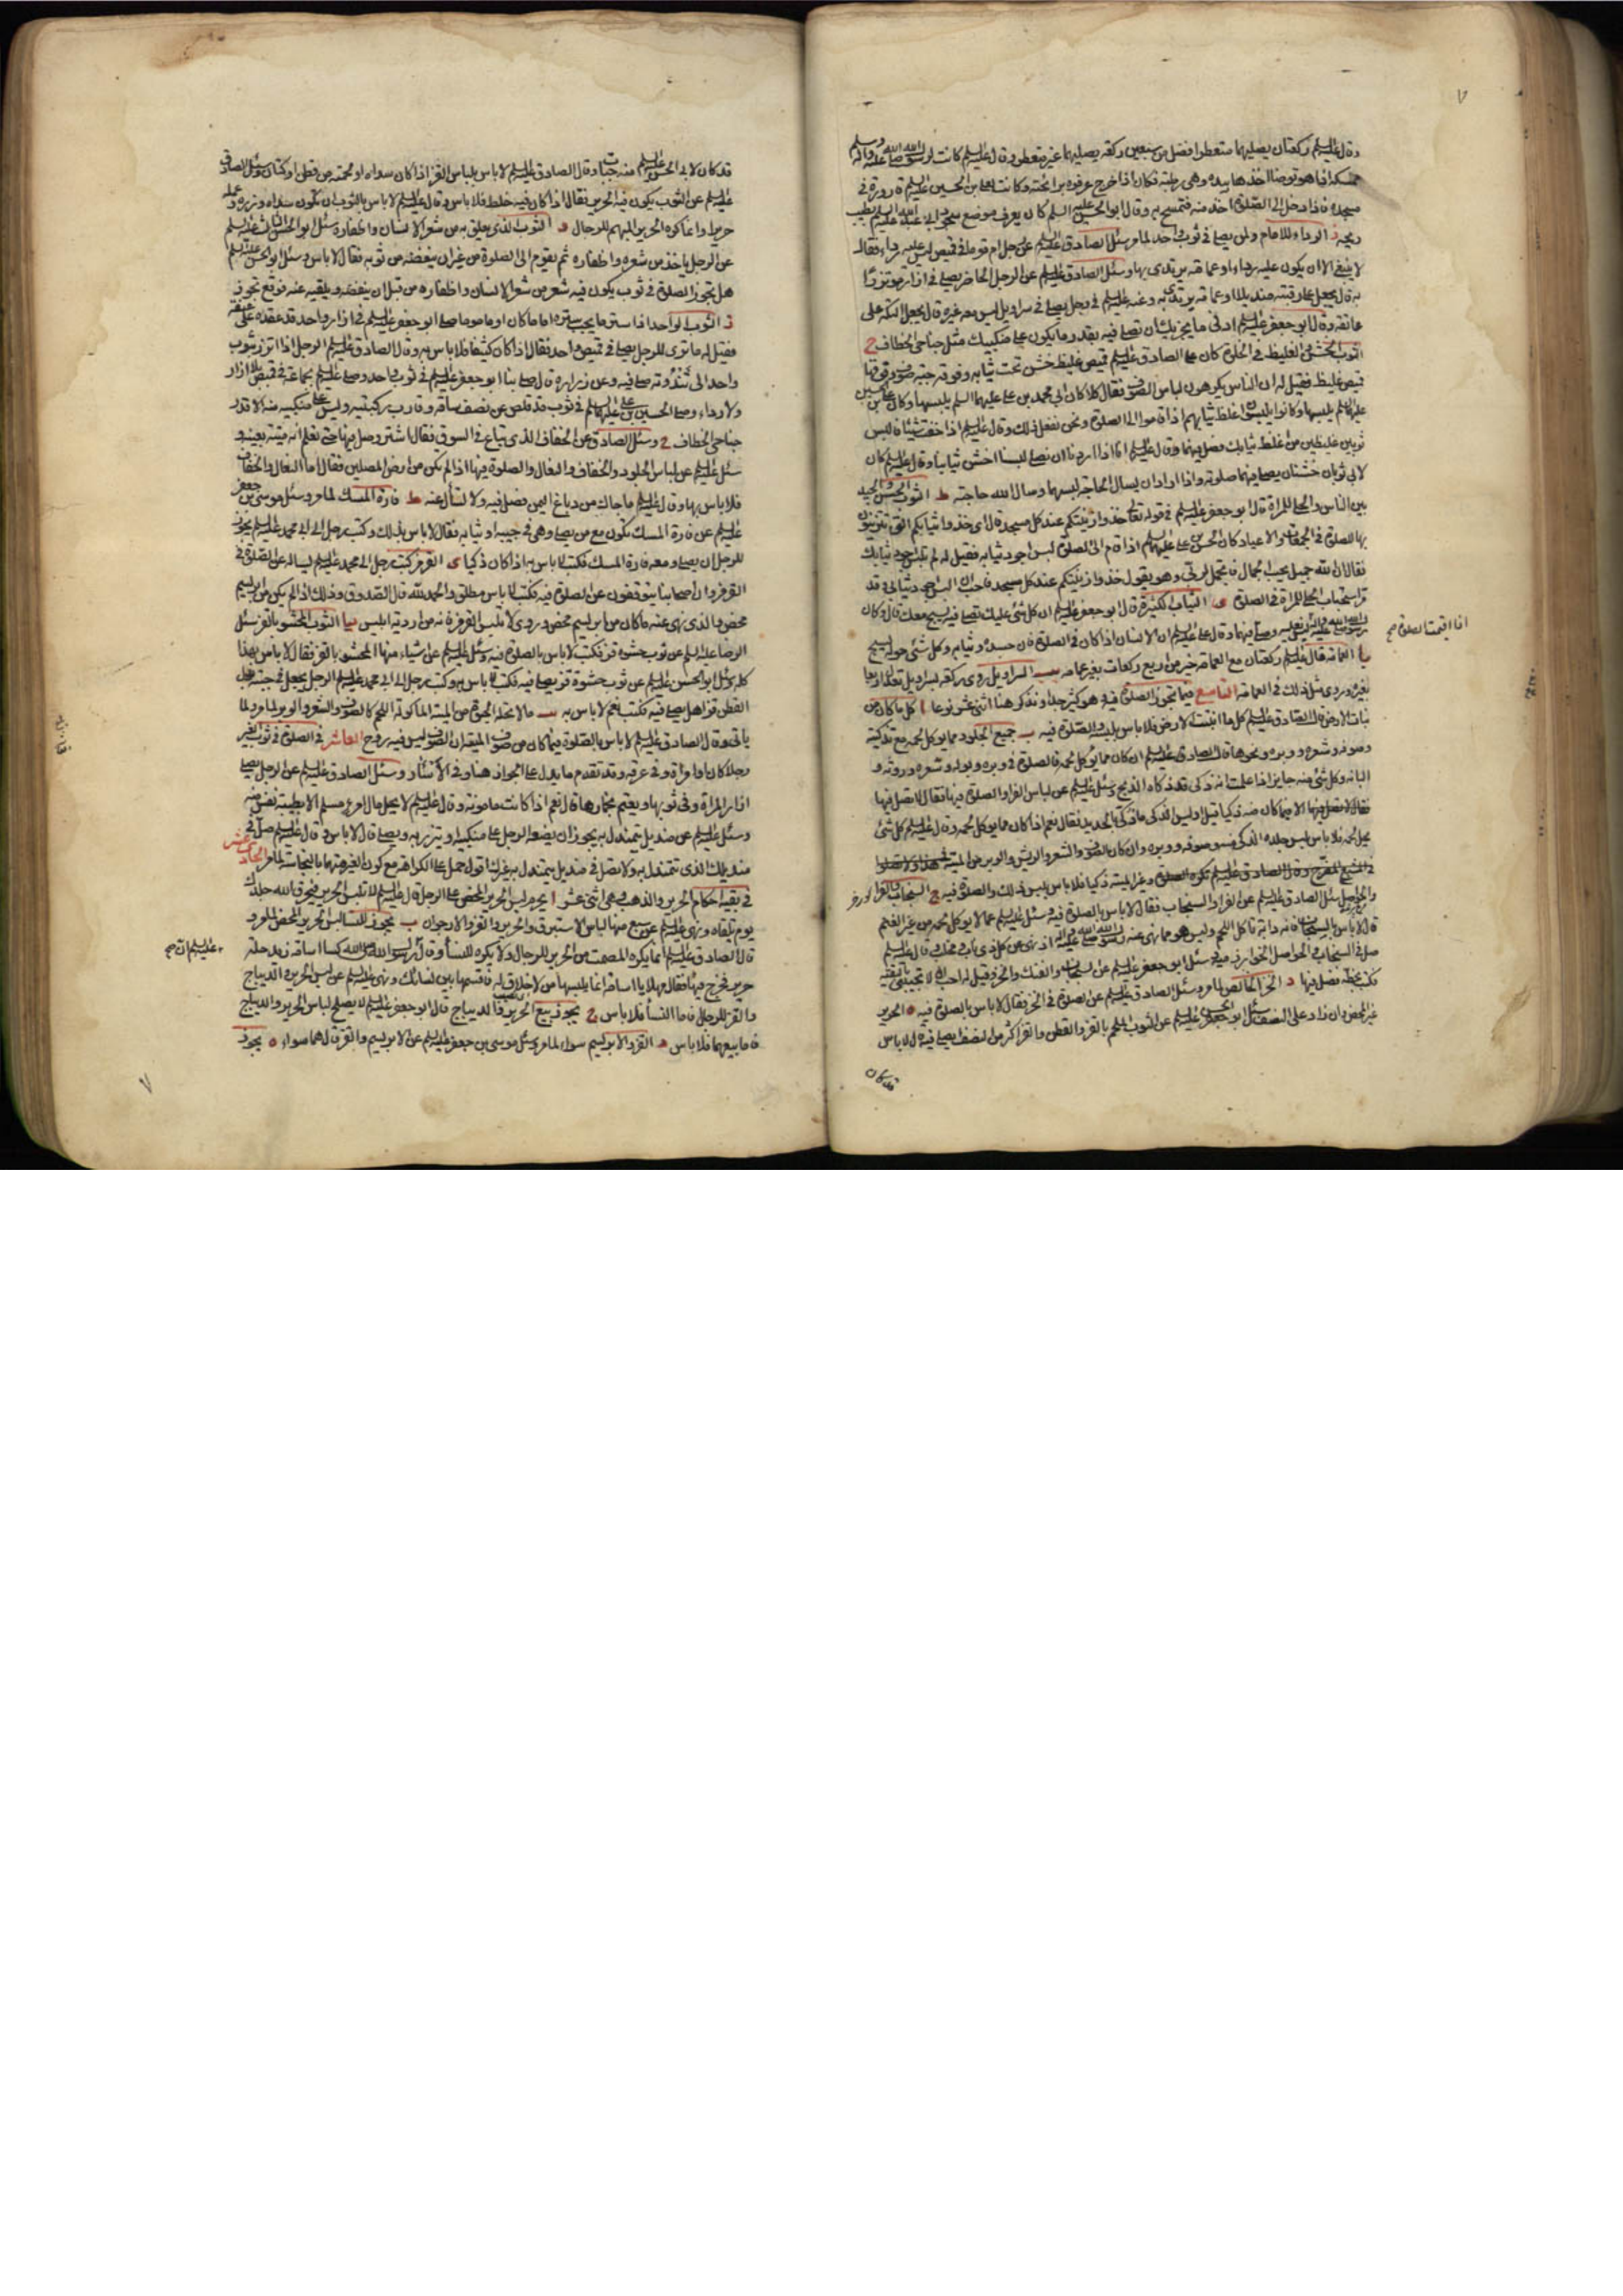 وقال عليه السلم ركعتان يصليهما متعطرا افضل من سبعين ركعة يصليهما غير متعطر وقال عليه السلم كانت لرسول الله صلى الله عليه وآله وسلم
ممسكة اذا هو توضا اخذها بيده وهي رطبة فكان اذا خرج عرفوه برائحته وكانت لعلي بن الحسين عليه السلم قارورة في
مسجده فاذا دخل الى الصلوة اخذ منه فتمسح به وقال ابو الحسن عليه السلم كان يعرف موضع سجود ابي عبد الله عليه السلم بطيب
ريحه الرداء للامام ولمن يصلي في ثوب واحد لما مر سئل الصادق عليه السلم عن رجل ام قوما في قميص ليس عليه رداء فقال
لا ينبغي الا ان يكون عليه رداء او عمامة يرتدي بها وسئل الصادق عليه السلم عن الرجل الحاضر يصلي في ازار مؤتزرا
به قال يجعل على رقبته منديلا او عمامة يرتدي به وعنه عليه السلم في رجل يصلي في سراويل ليس معه غيره قال يجعل التكة على
عاتقه وقال ابو جعفر عليه السلم ادنى ما يجزيك ان تصلي فيه بقدر ما يكون على منكبيك مثل جناحي الخطاف ح
الثوب الخشن الغليظ في الخلوة كان على الصادق عليه السلم قميص غليظ خشن تحت ثيابه وفوقه جبة صوف وفوقها
قميص غليظ فقيل له ان الناس يكرهون لباس الصوف فقال كلا كان ابي محمد بن علي عليهما السلم يلبسها وكان علي بن الحسين
عليهما السلم يلبسها وكانوا يلبسون اغلظ ثيابهم اذا قاموا الى الصلوة ونحن نفعل ذلك وقال عليه السلم اذا خفت شيئا فالبس
ثوبين غليظين من اغلظ ثيابك فصل فيهما وقال عليه السلم انا اذا اردنا ان نصلي لبسنا اخشن ثيابنا وقال عليه السلم كان
لابي ثوبان خشنان يصلي فيهما صلوته واذا اراد ان يسال الحاجة لبسهما وسال الله حاجته ط الثوب الحسن والجيد
بين الناس والحلي للمراة قال ابو جعفر عليه السلم في قوله تعالى خذوا زينتكم عند كل مسجد قال اي خذوا ثيابكم التي تتزينون
بها للصلوة في الجمعات والاعياد كان الحسن بن علي عليهما السلم اذا قام الى الصلوة لبس اجود ثيابه فقيل له لم تلبس اجود ثيابك
فقال ان الله جميل يحب الجمال فاتجمل لربي وهو يقول خذوا زينتكم عند كل مسجد فاحب ان البس اجود ثيابي قد
مر استحباب الحلي للمراة في الصلوة ى الثياب الكثيرة قال ابو جعفر عليه السلم ان كل شئ عليك تصلي فيه يسبح معك قال وكان
رسول الله صلى الله عليه وآله
وقال علي عليه السلم ان الانسان اذا كان في الصلوة فان جسده وثيابه وكل شئ حوله يسبح
يا العمامة قال عليه السلم ركعتان مع العمامة خير من اربع ركعات بغير عمامة يب السراويل روى ركعة بسراويل تعدل اربعا
بغيره وروى مثل ذلك في العمامة التاسع فيما تجوز الصلوة فيه وهو كثير جدا ونذكر هنا اثنى عشر نوعا ا كل ما كان من
نبات الارض قال الصادق عليه السلم كل ما انبتت الارض فلا باس بلبسه والصلوة فيه ب جميع الجلود مما يوكل لحمه مع تذكيته
وصوفه وشعره ووبره ونحوها قال الصادق عليه السلم ان كان مما يوكل لحمه فالصلوة في وبره وبوله وشعره وروثه و
البانه وكل شئ منه جايز اذا علمت انه ذكي قد ذكاه الذبح وسئل عليه السلم عن لباس الفرا والصلوة فيها فقال لا تصل فيها
الا فيما كان منه ذكيا قيل اوليس الذكي ما ذكي بالحديد فقال نعم اذا كان مما يوكل لحمه وقال عليه السلم كل شئ
يحل لحمه فلا باس بلبس جلده الذكي منه وصوفه ووبره وان كان الصوف والشعر والريش والوبر من الميتة
وغير الميتة ذكيا فلا باس بلبس ذلك والصلوة فيه ج السنجاب والفرا
والحواصل سئل الصادق عليه السلم عن الفرا والسنجاب فقال لا باس بالصلوة فيه وسئل عليه السلم عما لا يوكل لحمه من غير الغنم
قال لا باس بالسنجاب فانه دابة لا تاكل اللحم وليس هو مما نهى عنه رسول الله صلى الله عليه وآله اذ نهى عن كل ذي ناب ومخلب وقال عليه السلم
صل في السنجاب والحواصل الخوارزمية وسئل ابو جعفر عليه السلم عن السنجاب والفنك والخز وقيل له احب ان لا تجيبني بالتقية
فكتب بخطه صل فيها د الخز الخالص لما مر وسئل الصادق عليه السلم عن الصلوة في الخز فقال لا باس بالصلوة فيه ه الحرير
غير المحض وان زاد على النصف سئل ابو الحسن عليه السلم عن الثوب الملحم بالقز والقطن والقز اكثر من النصف يصلي فيه قال لا باس
قد كان
اذا اقمت الصلوة صح
قد كان لابي الحسن عليه السلم منه جبات وقال الصادق عليه السلم لا باس بلباس القز اذا كان سداه او لحمته من قطن او كتان وسئل الصادق
عليه السلم عن الثوب يكون فيه الحرير فقال اذا كان فيه خلط فلا باس وقال عليه السلم لا باس بالثوب ان يكون سداه وزره وعلمه
حريرا وانما كره الحرير المبهم للرجال و الثوب الذي يعلق به من شعر الانسان واظفاره سئل ابو الحسن الثالث عليه السلم
عن الرجل ياخذ من شعره واظفاره ثم يقوم الى الصلوة من غير ان ينفضه من ثوبه فقال لا باس وسئل ابو الحسن عليه السلم
هل تجوز الصلوة في ثوب يكون فيه شعر من شعر الانسان واظفاره من قبل ان ينفضه ويلقيه عنه فوقع تجوز
ز الثوب الواحد اذا ستر ما يجب ستره اماما كان او ماموما صلى ابو جعفر عليه السلم في ازار واحد قد عقده على عنقه
فقيل له ما ترى للرجل يصلي في قميص واحد فقال اذا كان كثيفا فلا باس به وقال الصادق عليه السلم الرجل اذا اتزر بثوب
واحد الى ثندوته صلى فيه وعن زرارة قال صلى بنا ابو جعفر عليه السلم في ثوب واحد وصلى عليه السلم بجماعة في قميص بلا ازار
ولا رداء وصلى الحسين بن علي عليهما السلم في ثوب قد قلص عن نصف ساقه وقارب ركبتيه وليس على منكبيه منه الا قدر
جناحي الخطاف ح وسئل الصادق عن الخفاف الذي تباع في السوق فقال اشتر وصل فيها حتى تعلم انه ميتة بعينه و
سئل عليه السلم عن لباس الجلود والخفاف والنعال والصلوة فيها اذا لم تكن من ارض المصلين فقال اما النعال والخفاف
فلا باس بها وقال عليه السلم ما جاءك من دباغ اليمن فصل فيه ولا تسأل عنه ط فارة المسك لما مر وسئل موسى بن جعفر
عليه السلم عن فارة المسك تكون مع من يصلي وهي في جيبه او ثيابه فقال لا باس بذلك وكتب رجل الى ابي محمد عليه السلم يجوز
للرجل ان يصلي ومعه فارة المسك فكتب لا باس به اذا كان ذكيا ى القز كتب رجل الى ابي محمد عليه السلم يساله عن الصلوة في
القرمز وان اصحابنا يتوقفون عن الصلوة فيه فكتب لا باس مطلق والحمد لله قال الصدوق وذلك اذا لم يكن من ابريسم
محض والذي نهى عنه ما كان من ابريسم محض وروى لا تلبس القرمز فانه من اردية ابليس يا الثوب المحشو بالقز سئل
الرضا عليه السلم عن ثوب حشوه قز فكتب لا باس بالصلوة فيه وسئل عليه السلم عن اشياء منها المحشو بالقز فقال لا باس بهذا
كله وسئل ابو الحسن عليه السلم عن ثوب حشوه قز يصلي فيه فكتب لا باس به وكتب رجل الى ابي محمد عليه السلم الرجل يجعل في جبته بدل
القطن قزا هل يصلي فيه فكتب نعم لا باس به يب ما لا تحله الحيوة من الميتة الماكولة اللحم كالصوف والشعر والوبر لما مر ولما
ياتي وقال الصادق عليه السلم لا باس بالصلوة فيما كان من صوف الميتة ان الصوف ليس فيه روح العاشر في الصلوة في ثوب الغير
رجلا كان او امراة وفي عرقه وقد تقدم ما يدل على الجواز هنا وفي الآسار وسئل الصادق عليه السلم عن الرجل يصلي
في ازار المراة وفي ثوبها ويعتم بخمارها قال نعم اذا كانت مامونة وقال عليه السلم لا يحل مال امرئ مسلم الا بطيبة نفس منه
وسئل عليه السلم عن منديل يتمندل به يجوز ان يضعه الرجل على منكبيه ويتزر به ويصلي قال لا باس وقال عليه السلم صل في
منديلك الذي تتمندل به ولا تصل في منديل يتمندل به غيرك اقول حمل على الكراهة مع كون الغير متهما بالنجاسة لما مر الحادي عشر
في بقية احكام الحرير والذهب وهي اثنى عشر ا يحرم لبس الحرير المحض على الرجال قال عليه السلم لا تلبس الحرير فيحرق الله جلدك
يوم تلقاه ونهى عليه السلم عن سبع منها لباس الاستبرق والحرير والقز والارجوان ب يجوز للنساء لبس الحرير المحض لما مر و
قال الصادق عليه السلم انما يكره المصمت من الحرير للرجال ولا يكره للنساء وقال رسول الله صلى الله كسا اسامة بن زيد حلة
حرير فخرج فيها فقال مهلا يا اسامة انما يلبسها من لا خلاق له فاقسمها بين نسائك ونهى عليه السلم عن لبس الحرير والديباج
والقز للرجال فاما النساء فلا باس ج يجوز بيع الحرير والديباج قال ابو جعفر عليه السلم لا يصلح لباس الحرير والديباج
فاما بيعهما فلا باس د القز والابريسم سواء لما مر وسئل موسى بن جعفر عليه السلم عن الابريسم والقز قال هما سواء ه يجوز
عليه السلم ان صح